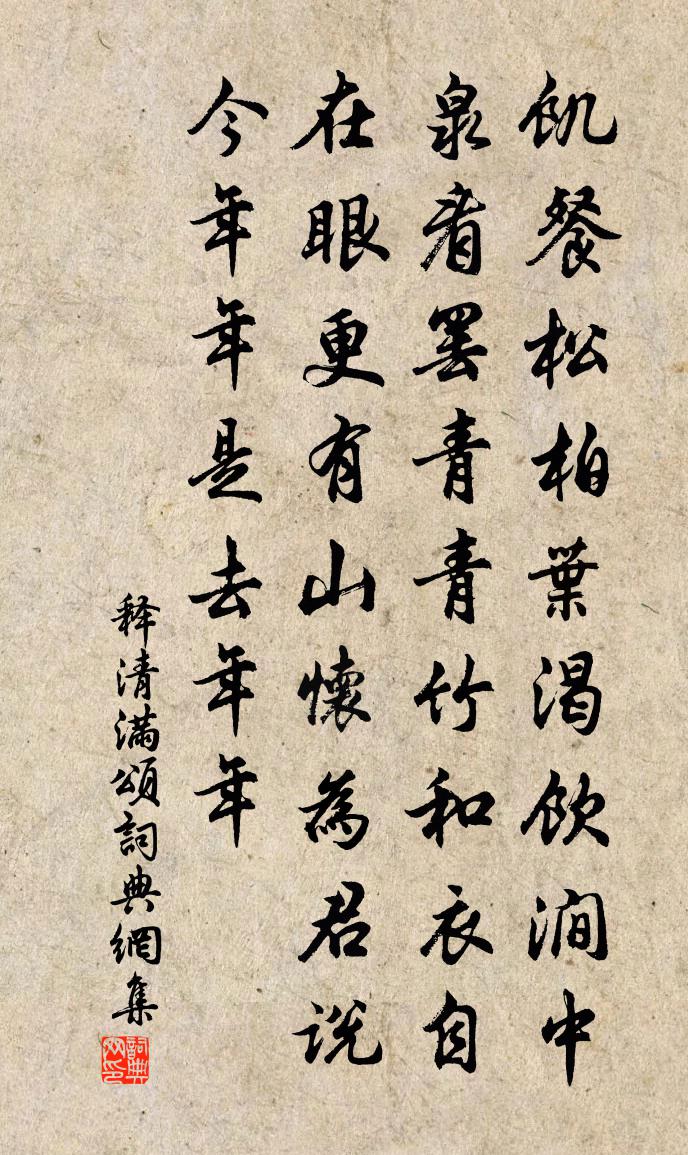 飢餐松柏葉渴飲澗中
泉看罷青青竹和衣自
在眼更有山懷為君説
今年年是去年年
释清滿頌詞典網集
詞典网印